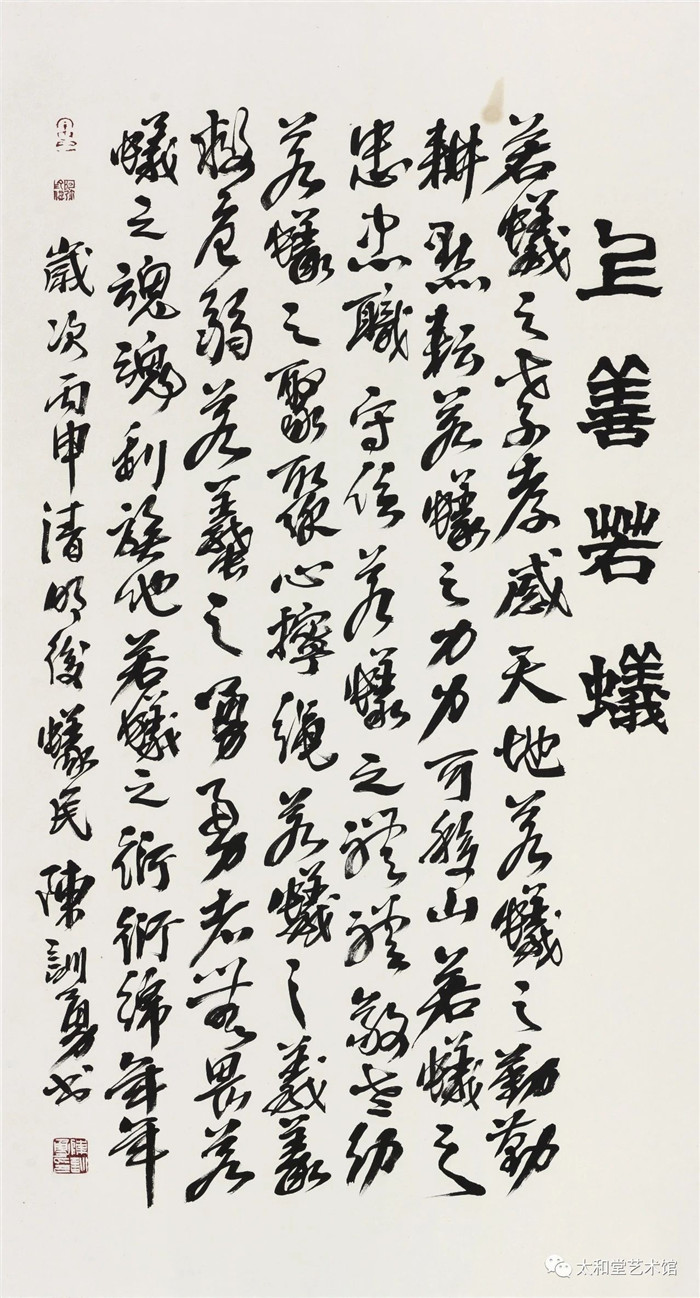 上善若蟻
若蟻之孝孝感天地若蟻之勤勤
耕默耘若蟻之力力可移山若蟻之
忠忠職守信若蟻之禮禮敬老幼
若蟻之聚聚心擰繩若蟻之義義
救危弱若蟻之勇勇者無畏若
蟻之魂魂利族他若蟻之衍衍綿年年
歲次丙申清明後蟻民陳訓勇書
太和堂艺术馆